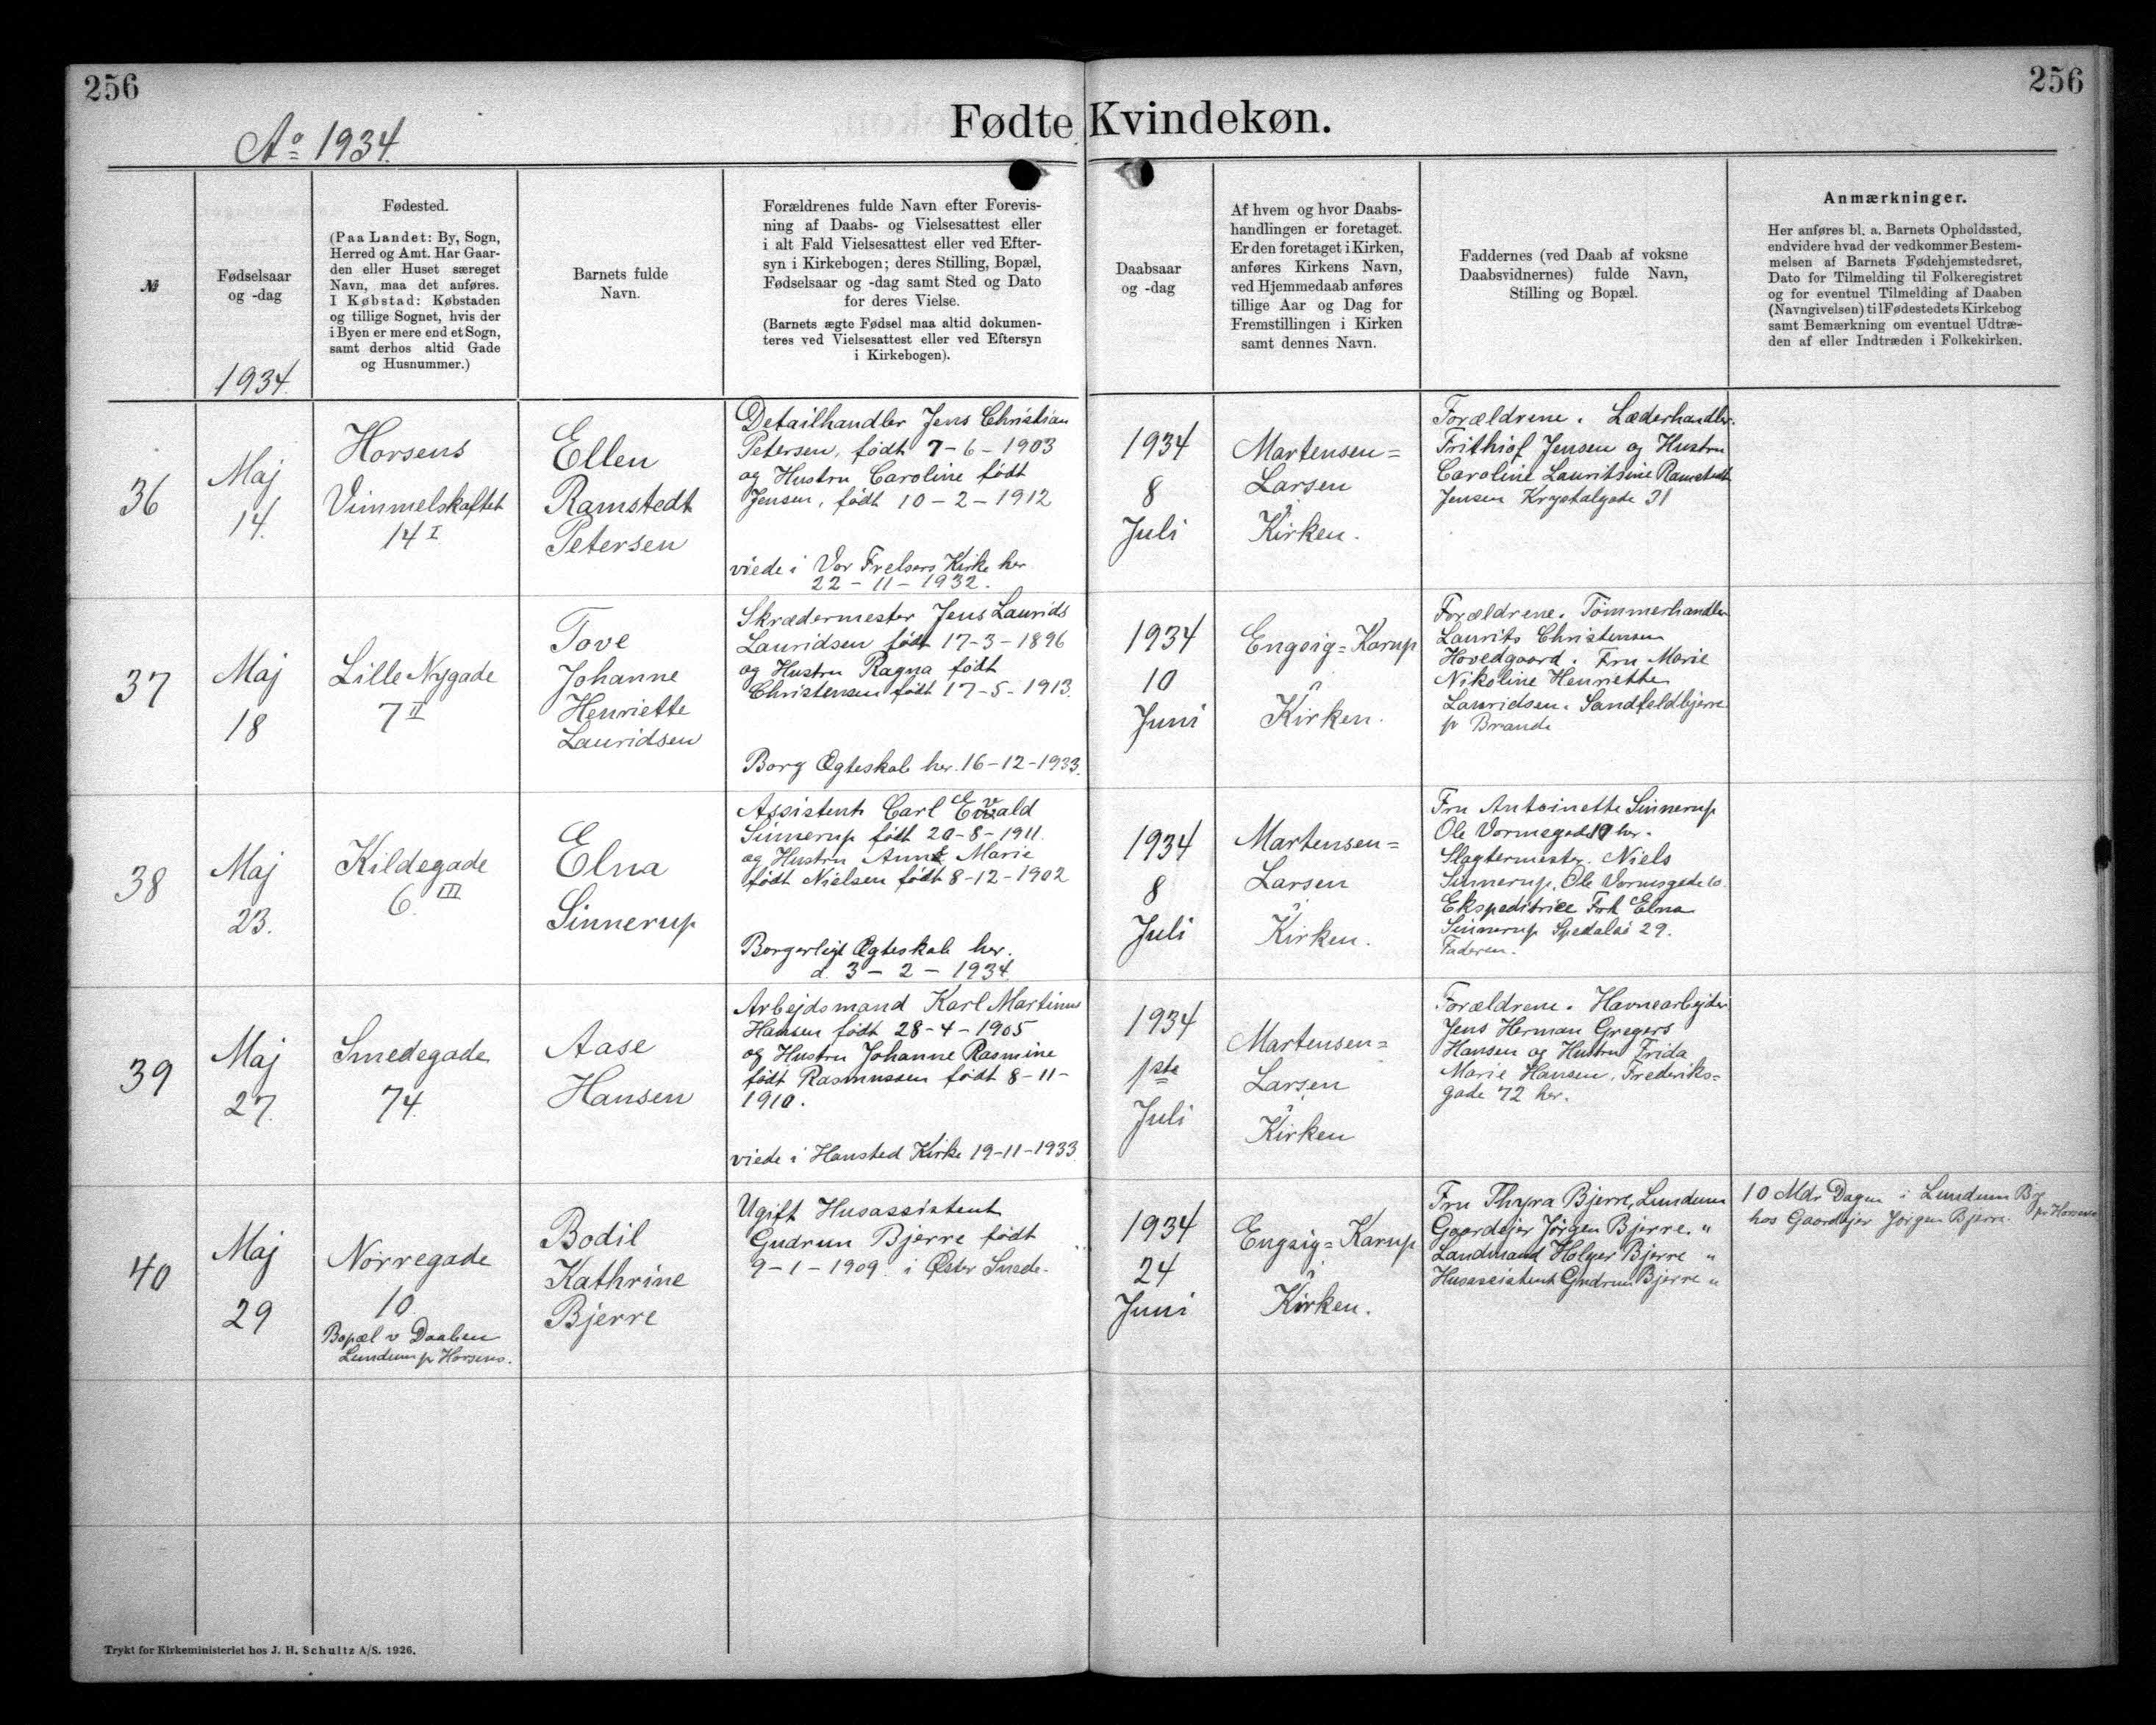 256
256
Aº 1934.
Fødte Kvindekøn.
№
Fødselsaar
og -dag
1934.
Fødested.
(Paa Landet: By, Sogn,
Herred og Amt. Har Gaar-
den eller Huset særeget
Navn, maa det anføres.
I Købstad: Købstaden
og tillige Sognet, hvis der
i Byen er mere end et Sogn,
samt derhos altid Gade
og Husnummer.)
Barnets fulde
Navn.
Forældrenes fulde Navn efter Forevis-
ning af Daabs- og Vielsesattest eller
i alt Fald Vielsesattest eller ved Efter-
syn i Kirkebogen; deres Stilling, Bopæl,
Fødselsaar og -dag samt Sted og Dato
for deres Vielse.
(Barnets ægte Fødsel maa altid dokumen-
teres ved Vielsesattest eller ved Eftersyn
i Kirkebogen).
Daabsaar
og -dag
Af hvem og hvor Daabs-
handlingen er foretaget.
Er den foretaget i Kirken,
anføres Kirkens Navn,
ved Hjemmedaab anføres
tillige Aar og Dag for
Fremstillingen i Kirken
samt dennes Navn.
Faddernes (ved Daab af voksne
Daabsvidnernes) fulde Navn,
Stilling og Bopæl.
Anmærkninger.
Her anføres bl. a. Barnets Opholdssted,
endvidere hvad der vedkommer Bestem-
melsen af Barnets Fødehjemstedsret,
Dato for Tilmelding til Folkeregistret
og for eventuel Tilmelding af Daaben
(Navngivelsen) til Fødestedets Kirkebog
samt Bemærkning om eventuel Udtræ-
den af eller Indtræden i Folkekirken.
36
Maj
14.
Horsens
Vimmelskaftet
14 I
Ellen
Ramstedt
Petersen
Detailhandler Jens Christian
Petersen, født 7-6-1903
og Hustru Caroline født
Jensen, født 10-2-1912
viede i Vor Frelsers Kirke her
22-11-1932.
1934
8
Juli
Martensen=
Larsen
Kirken.
Forældrene. Læderhandler
Frithiof Jensen og Hustru
Caroline Lauritsine Ramstedt
Jensen Krystalgade 31
37
Maj
18
Lille Nygade
7 II
Tove
Johanne
Henriette
Lauridsen
Skrædermester Jens Laurids
Lauridsen født 17-3-1896
og Hustru Ragna født
Christensen født 17-5-1913.
Borg Ægteskab her. 16-12-1933.
1934
10
Juni
Engsig=Karup
Kirken.
Forældrene. Tømmerhandler
Laurits Christensen
Hovedgaard. Fru Marie
Nikoline Henriette
Lauridsen. Sandfeldbjerre
pr Brande
38
Maj
23.
Kildegade
6 III
Elna
Sinnerup
Assistent Carl Ewald
Sinnerup født 20-8-1911.
og Hustru Anne Marie
født Nielsen født 8-12-1902
Borgerligt Ægteskab her.
d. 3-2-1934
1934
8
Juli
Martensen=
Larsen
Kirken.
Fru Antoinette Sinnerup
Ole Vormsgade 10 her.
Slagtermester. Niels
Sinnerup. Ole Vormsgade 10.
Ekspeditrice Frk Elna
Sinnerup Spedalsø 29.
Faderen.
39
Maj
27.
Smedegade
74.
Aase
Hansen
Arbejdsmand Karl Martinus
Hansen født 28-4-1905
og Hustru Johanne Rasmine
født Rasmussen født 8-11-
1910.
viede i Hansted Kirke 19-11-1933.
1934
1ste
Juli
Martensen=
Larsen
Kirken
Forældrene. Havnearbejder
Jens Herman Gregers
Hansen og Hustru Frida
Marie Hansen, Frederiks=
gade 72 her.
40
Maj
29
Nørregade
10.
Bopæl v Daaben
Lundum pr Horsens.
Bodil
Kathrine
Bjerre
Ugift Husassistent
Gudrun Bjerre født
9-1-1909 i Øster Snede.
1934
24
Juni
Engsig=Karup
Kirken.
Fru Thyra Bjerre, Lundum
Gaardejer Jørgen Bjerre. "
Landmand Holger Bjerre "
Husassistent Gudrun Bjerre "
10 Mdr Dagen i Lundum By
hos Gaardejer Jørgen Bjerre. pr Horsens
Trykt for Kirkeministeriet hos J. H. Schultz A/S. 1926.